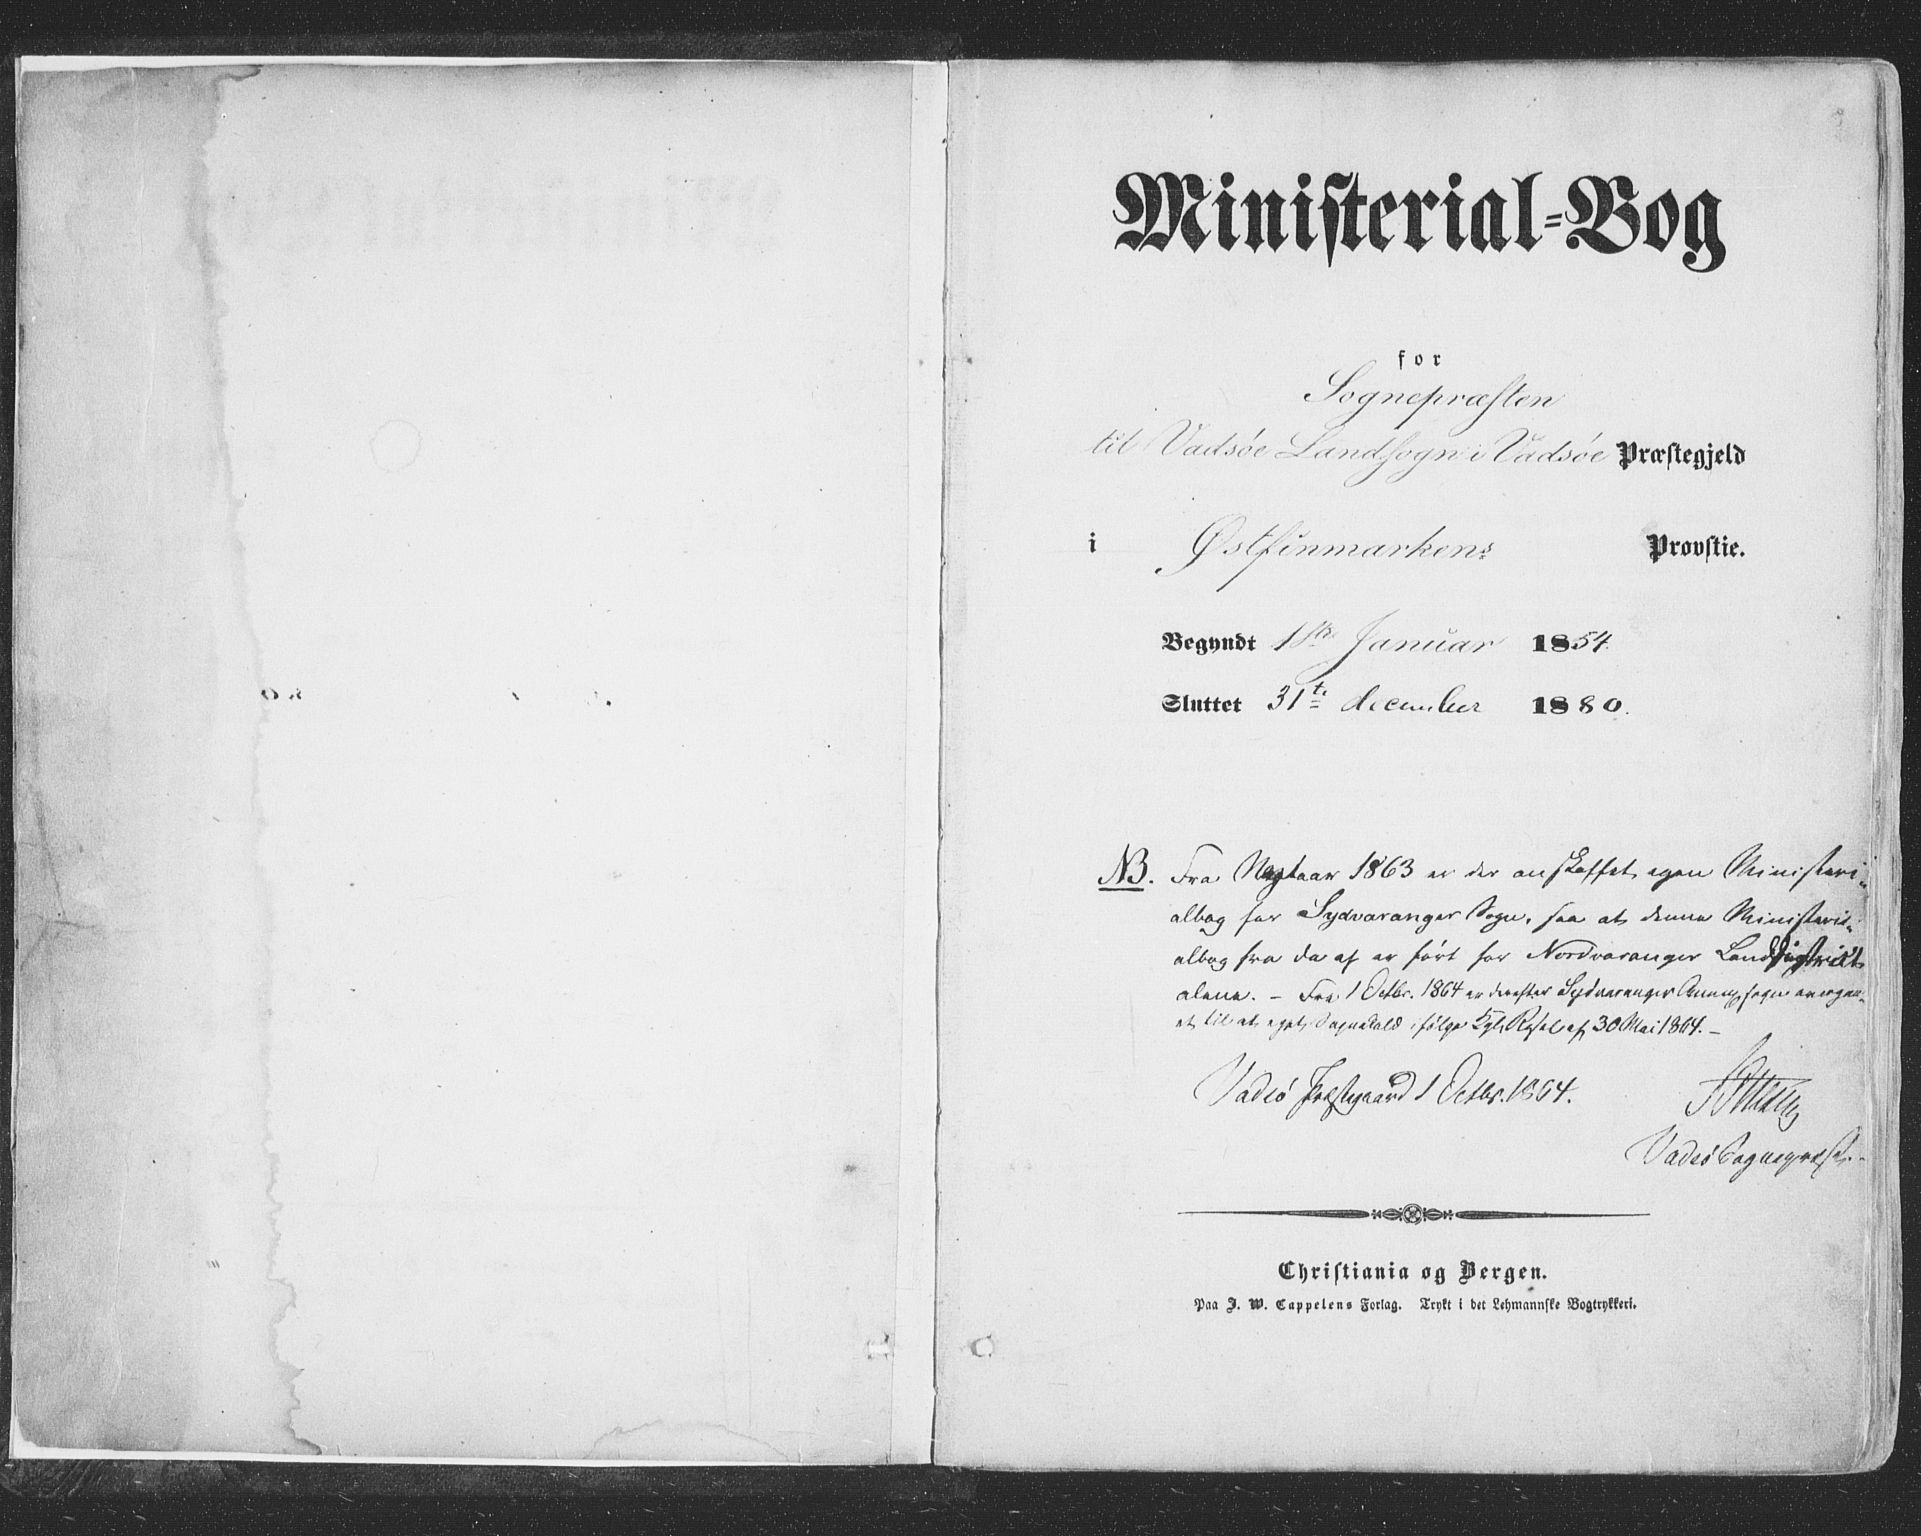 Ministerial-Bog
for
Sognepræsten
til Vadsöe Landsogn i Vadsöe Præstegjeld
i Østfinmarkens Provstie.
Begyndt 1ste Januar 1854.
Sluttet 31te december 1880.
NB. Fra Nytaar 1863 er der anskaffet egen Ministeri-
albog for Sydvaranger Sogn, saa at denne Ministeri-
albog fra da af er ført for Nordvaranger Landdistrikt
alene. – Fra 1 Octbr. 1864 er derefter Sydvaranger Annexsogn
et til et eget Sognekald ifølge Kgl. Resol. af 30 Mai 1864. –
Vadsö Præstegaard 1 Octbr. 1864.
Vadsö Sognepræst.
Christiania og Bergen.
Paa J. W. Cappelens Forlag. Trykt i det Lehmannske Bogtrykkeri.